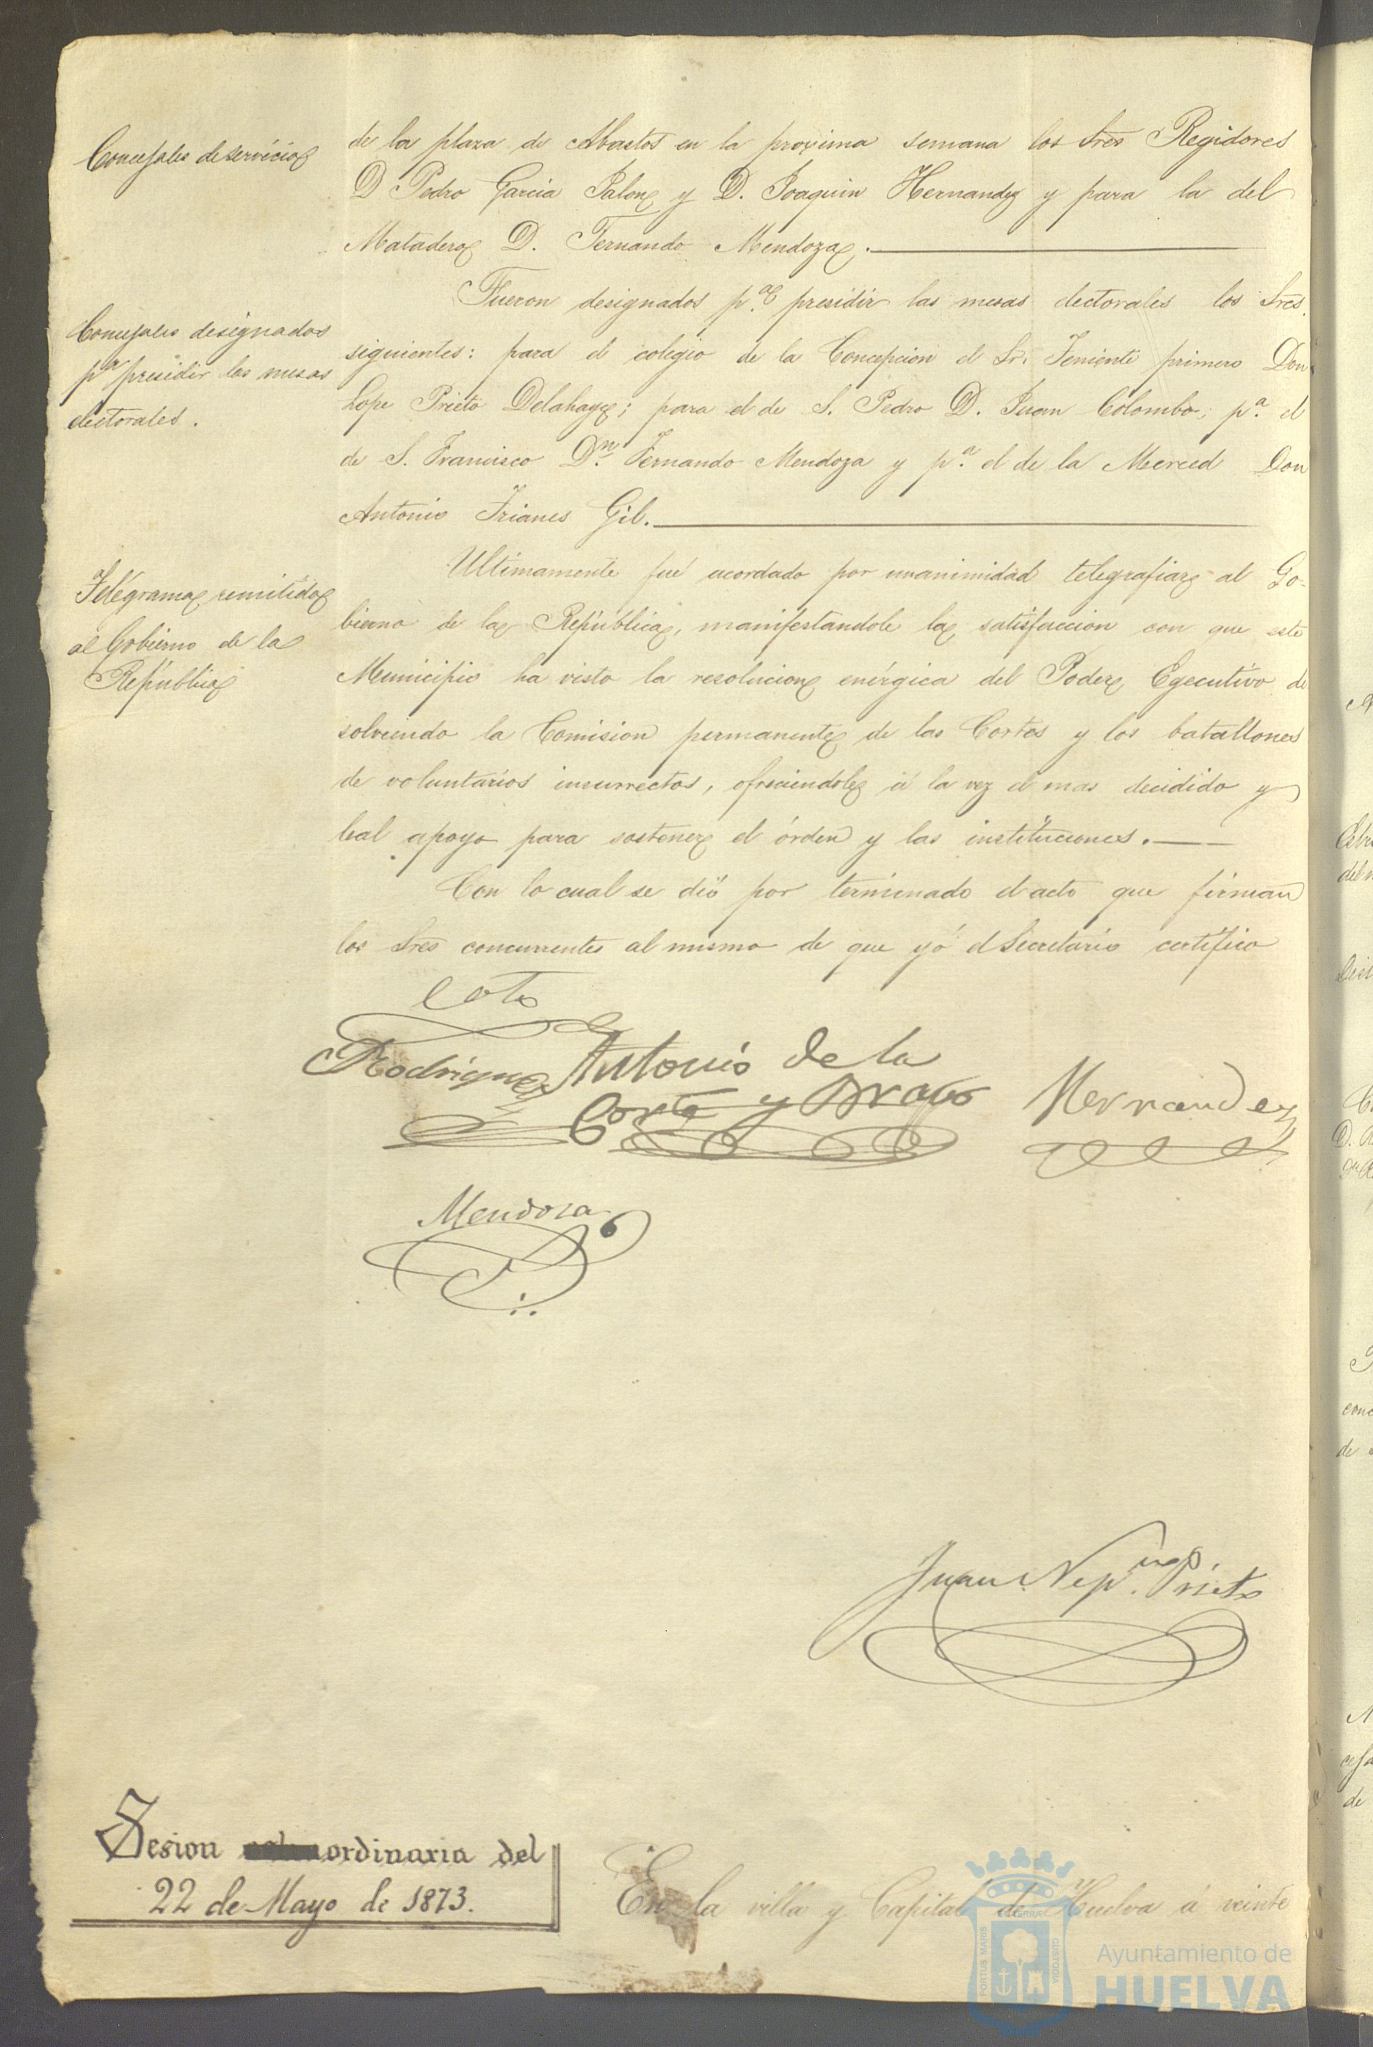 Concejales de servicio
de la plaza de Abastos en la proxima semana los Sres Regidores
D Pedro Garcia Jalon y D. Joaquin Hernandez y para la del
Matadero D. Fernando Mendoza.
Concejales designados
pª presidir las mesas
electorales.
Fueron designados p.ª presidir las mesas electorales los Sres.
siguientes: para el colegio de la Concepcion el Sr. Teniente primero Don
Lope Prieto Delahaye; para el de S. Pedro D. Juan Colombo; p.ª el
de S. Francisco D.n Fernando Mendoza y p.ª el de la Merced Don
Antonio Trianes Gil.
Telégrama remitido
al Gobierno de la
República
Ultimamente fué acordado por unanimidad telegrafiar al Go-
bierno de la República, manifestandole la satisfaccion con que este
Municipio ha visto la resolucion enérgica del Poder Egecutivo di
solviendo la Comision permanente de las Cortes y los batallones
de voluntarios insurrectos, ofreciendole á la vez el mas decidido y
leal apoyo para sostener el órden y las instituciones.
Con lo cual se dió por terminado el acto que firman
los Sres concurrentes al mismo de que yó el Secretario certifico
Coto
Rodriguez Antonio de la
Corte y Bravo Hernandez
Mendoza
Juan Nep.no Prieto
Sesion ordinaria del
22 de Mayo de 1873.
En la villa y Capital de Huelva á veinte
PORTUS MARIS
CUSTODIA
Ayuntamiento de
HUELVA